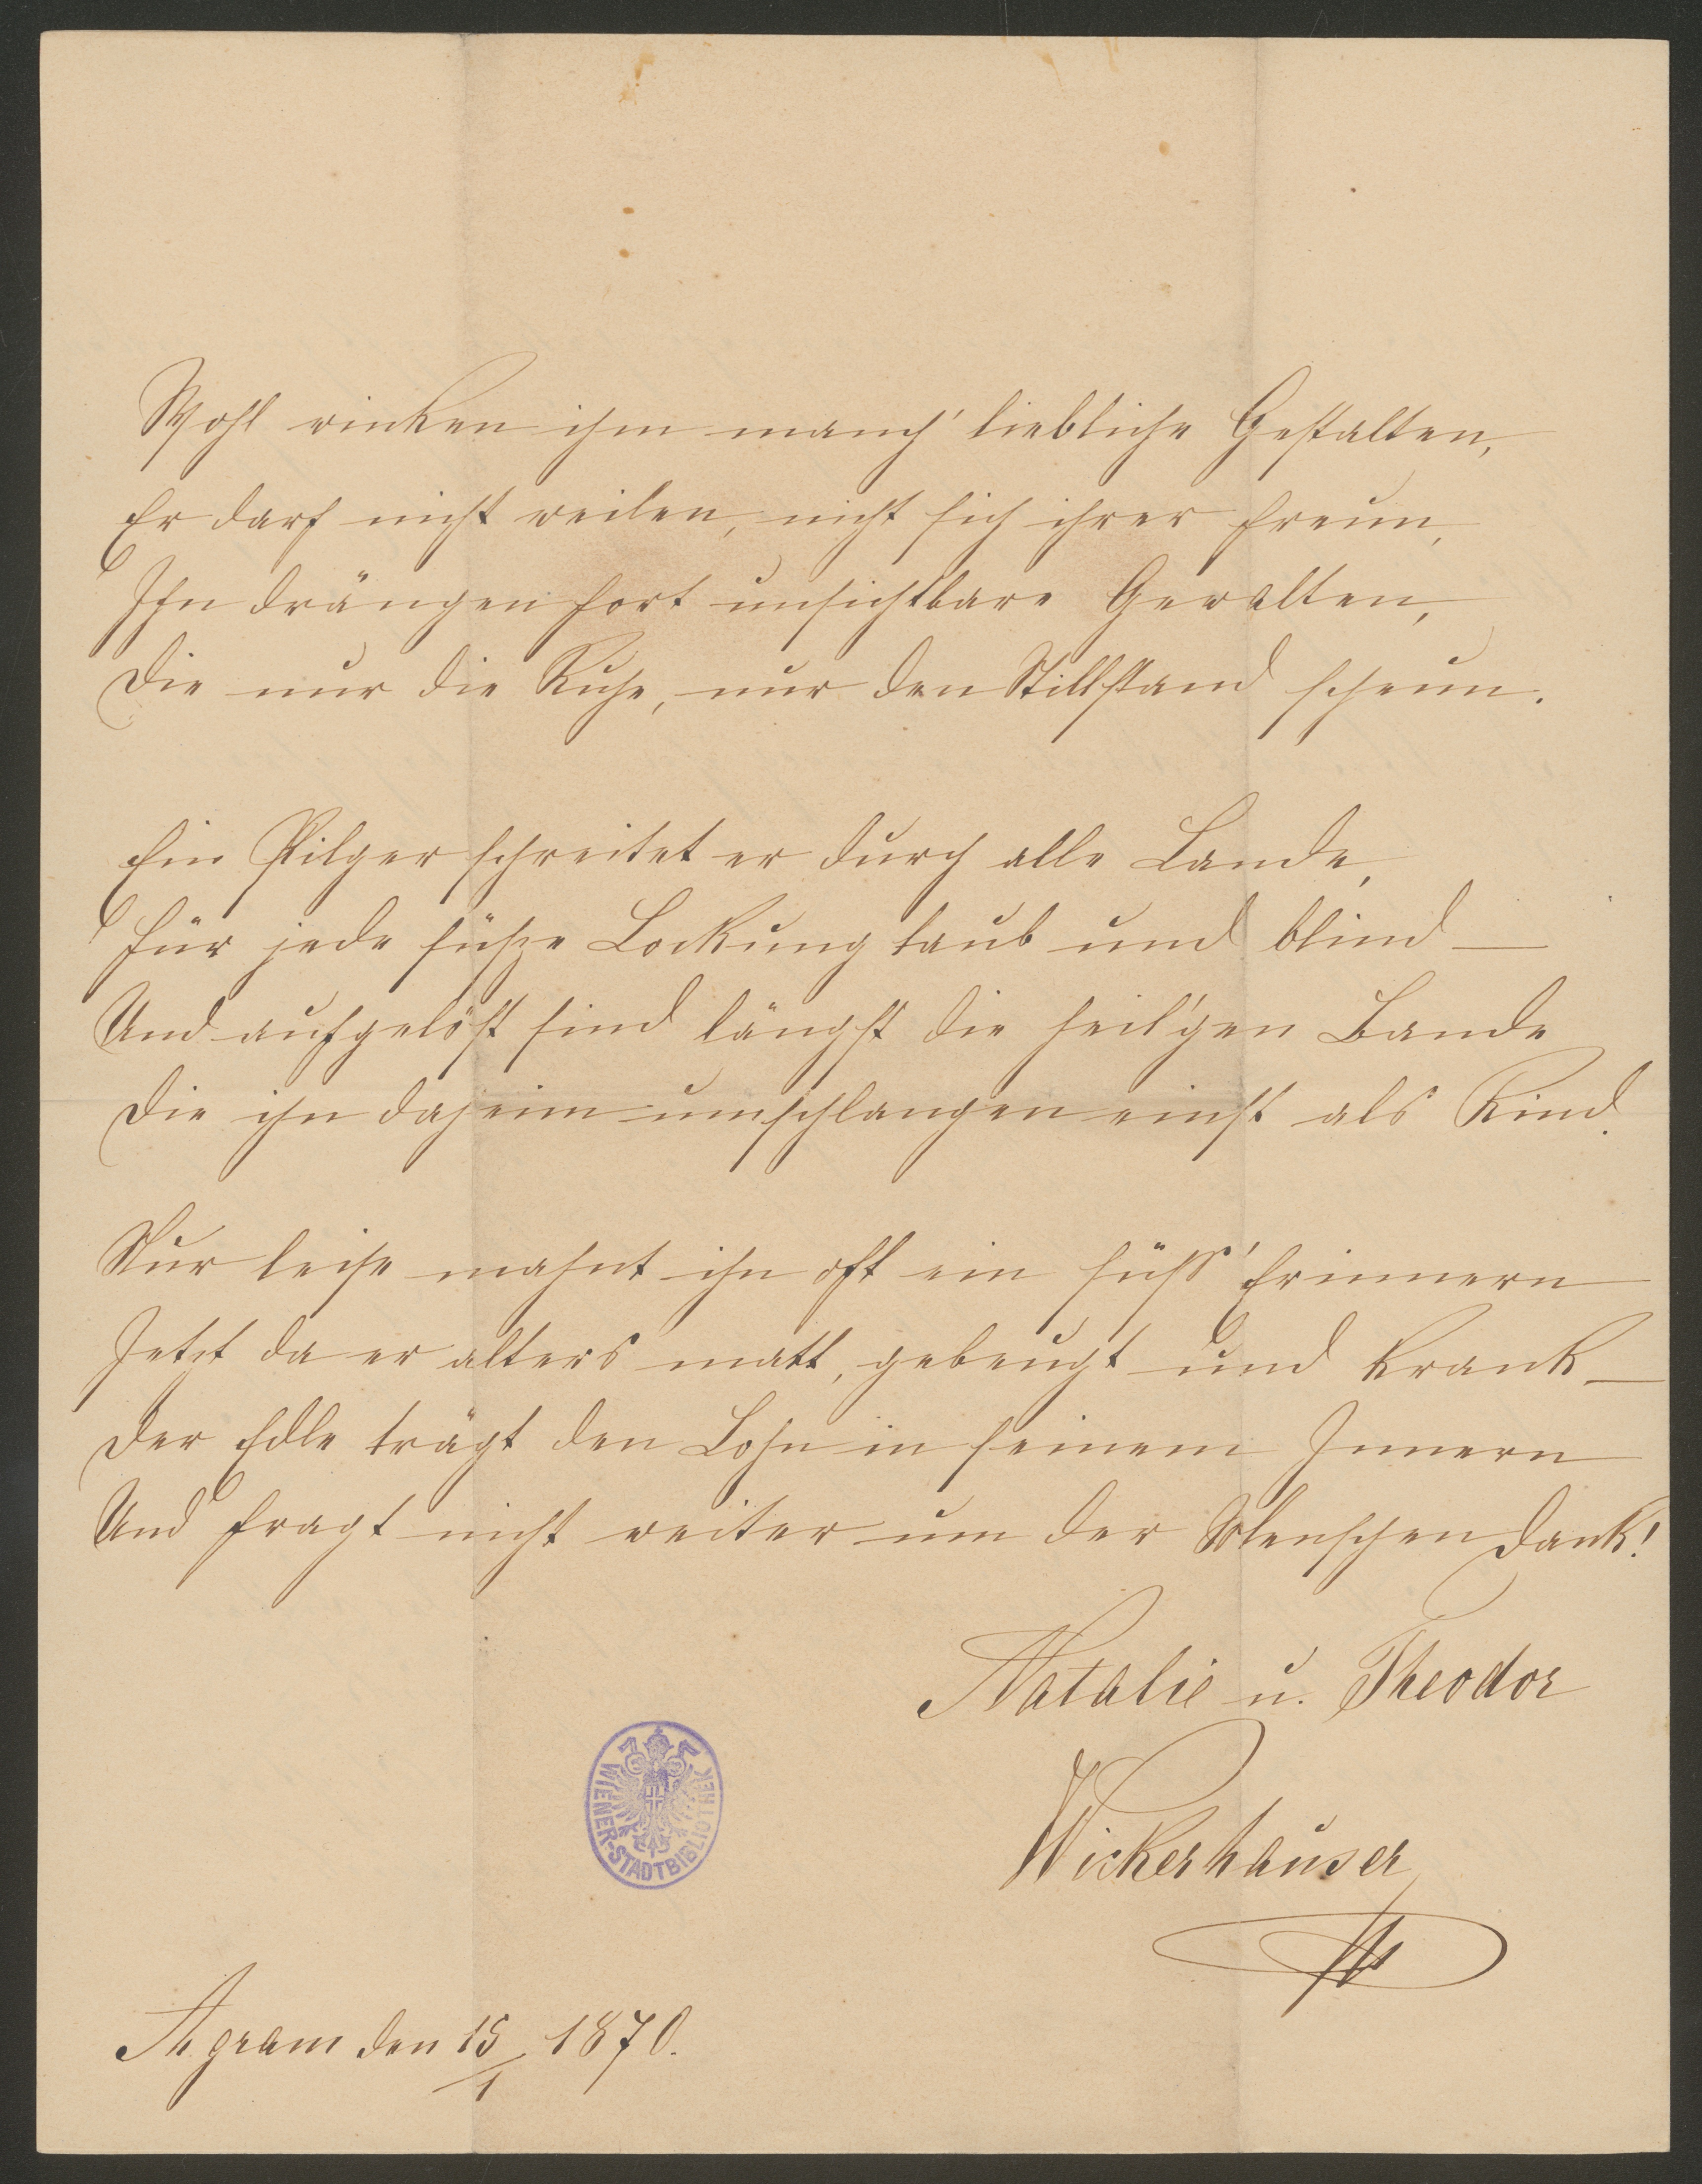 Wohl winken ihm manch' liebliche Gestalten,
Er darf nicht weilen, nicht sich ihrer freun,
Ihn drängen fort unsichtbare Gewalten,
Die nur die Ruhe, nur den Stillstand scheun.
Ein Pilger schreitet er durch alle Lande,
Für jede süße Lockung taub und blind —
Und aufgelöst sind längst die heil'gen Bande
Die ihn daheim umschlangen einst als Kind.
Nur leise mahnt ihn oft ein süss' Erinnern
Jetzt da er alters matt, gebeugt und krank —
Der Edle trägt den Lohn in seinem Innern
Und fragt nicht weiter um der Menschen Dank!
Natalie u. Theodor
Wickerhauser
WIENER-STADTBIBLIOTHEK
Agram den 15/1 1870.